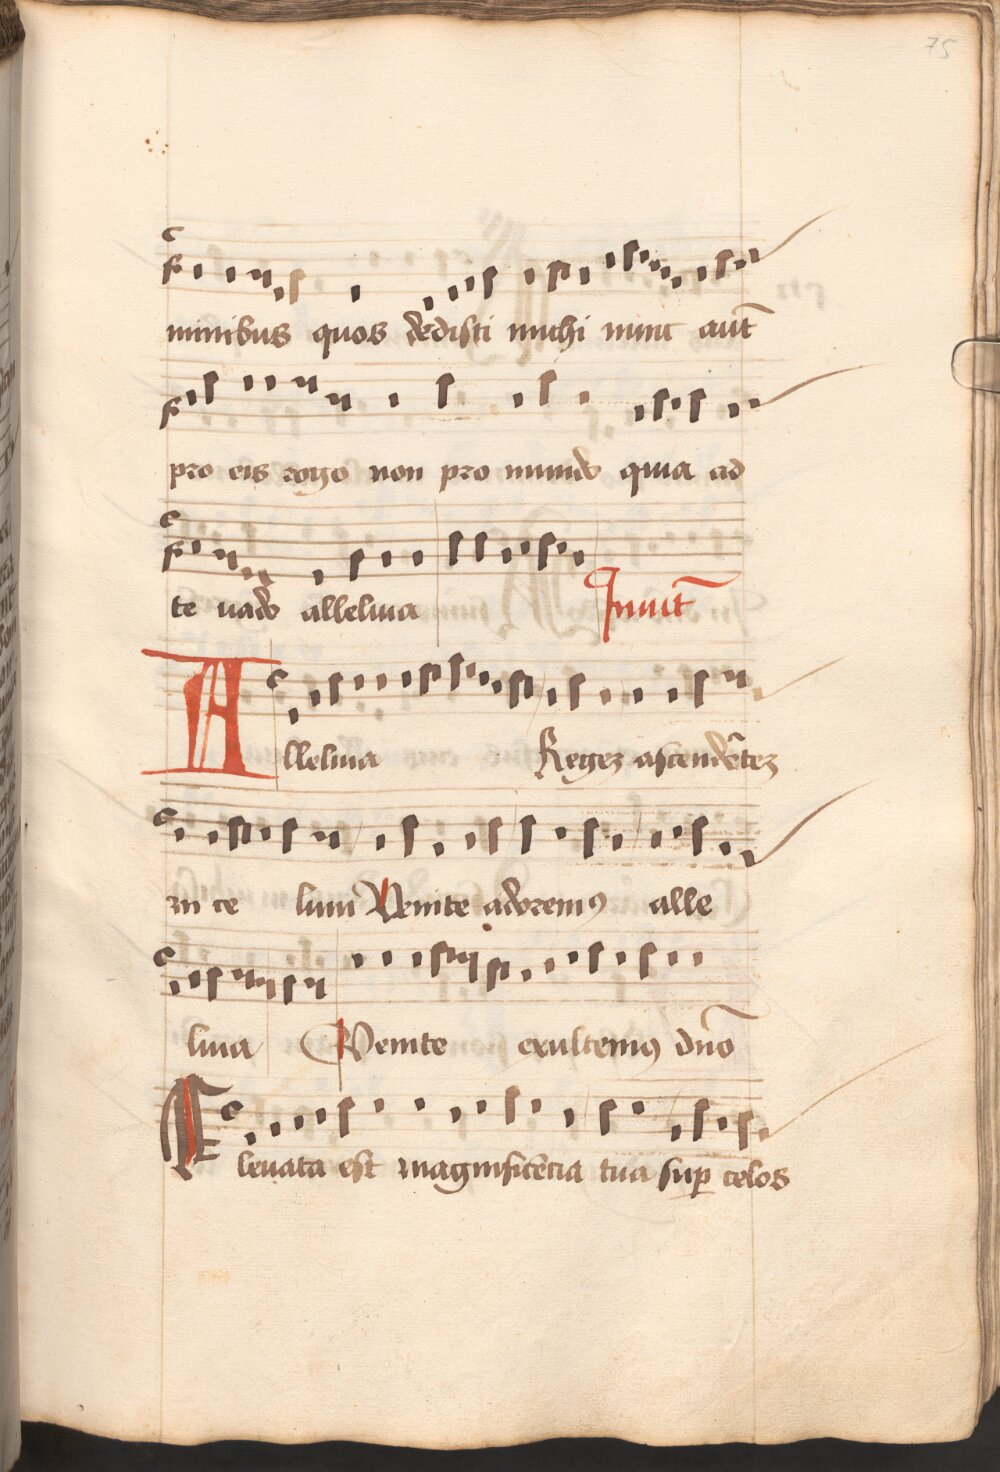 75
minibus quos dedisti michi nunc aut̄
pro eis rogo non pro mundo quia ad
te uado alleluia Inuit̄
Alleluia Regez ascendētez
in ce lum Venite adoremꝰ alle
luia Venite exultemꝰ dn̄o
Eleuata est magnificēcia tua sup̲ celos